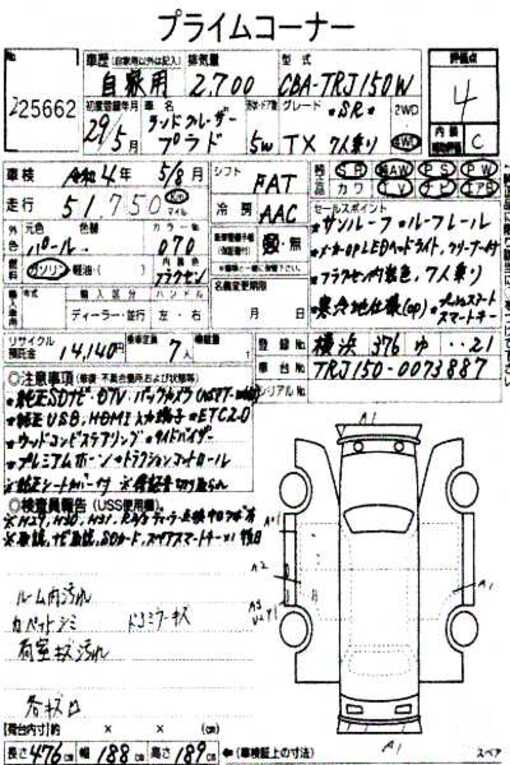 プライムコーナー
No
225662
車歴 (自家用以外は記入) 排気量 型式 評価点
自家用 2,700 CBA-TRJ150W 4
初度登録年月 車名 形状・ドア数 グレード ★SR★ 2WD
29年 5月 ランドクルーザープラド 5W TX 7人乗り 4WD
内装 C
車検 令和4年 5/8月
シフト FAT
SR AW PS PW
カワ TV ナビ エアB
走行 51,750 Km マイル
冷房 AAC
外色 元色 色替 カラーNo
パール 070
燃料 ガソリン 軽油・( ) 内装色
フラクセン
有・無
セールスポイント
★サンルーフ★ルーフレール
★メーカーOP LEDヘッドライト,クリーナー付
★フラクセン内装色,7人乗り
★寒冷地仕様(op) ★プッシュスタート
スマートキー
名義変更期限
月 日
年式 輸入区分 ハンドル
ディーラー・並行 左・右
リサイクル預託金 14,140円 乗車定員 7人 積載量 t
登録No. 横浜 376 ゆ ・・21
車台No. TRJ150-0073887
シリアルNo.
◎注意事項 (修復・不具合箇所および状態等)
★純正SDナビ・DTV・バックカメラ
★純正USB,HDMI入力端子★ETC2.0
★ウッドコンビステアリング★サイドバイザー
★プレミアムホーン★トラクションコントロール
★純正シートカバー付
◎検査員報告 (USS使用欄)。
※H29,H30,H31,
※取説,ナビ取説,SDカード,スペアスマートキー×1
ルーム内汚れ
カーペットシミ ドミラーキズ
荷室キズ汚れ
各キズ
A1
A2
A1
A1
【荷台内寸】約 × × (cm)
長さ476cm 幅188cm 高さ189cm ←(車検証上の寸法)
スペア